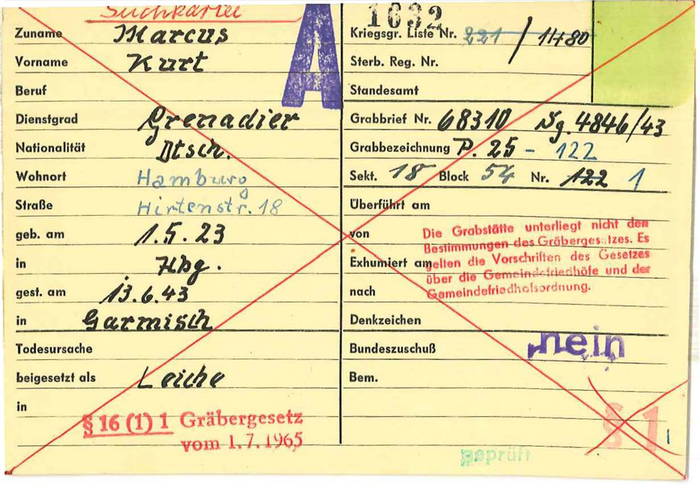 Suchkartei
A
1632
Zuname Marcus
Vorname Kurt
Beruf
Dienstgrad Grenadier
Nationalität Dtsch.
Wohnort Hamburg
Straße Hirtenstr. 18
geb. am 1.5.23
in Hbg.
gest. am 13.6.43
in Garmisch
Todesursache
beigesetzt als Leiche
in
§ 16 (1) 1 Gräbergesetz
vom 1.7.1965
Kriegsgr. Liste Nr. 221 / 1480
Sterb. Reg. Nr.
Standesamt
Grabbrief Nr. 68310 Ng. 4846/43
Grabbezeichnung P. 25 - 122
Sekt. 18 Block 54 Nr. 122 1
Überführt am
von
Exhumiert am
nach
Die Grabstätte unterliegt nicht den
Bestimmungen des Gräbergesetzes. Es
gelten die Vorschriften des Gesetzes
über die Gemeindefriedhöfe und der
Gemeindefriedhofsordnung.
Denkzeichen
Bundeszuschuß nein
Bem.
§ 1
geprüft